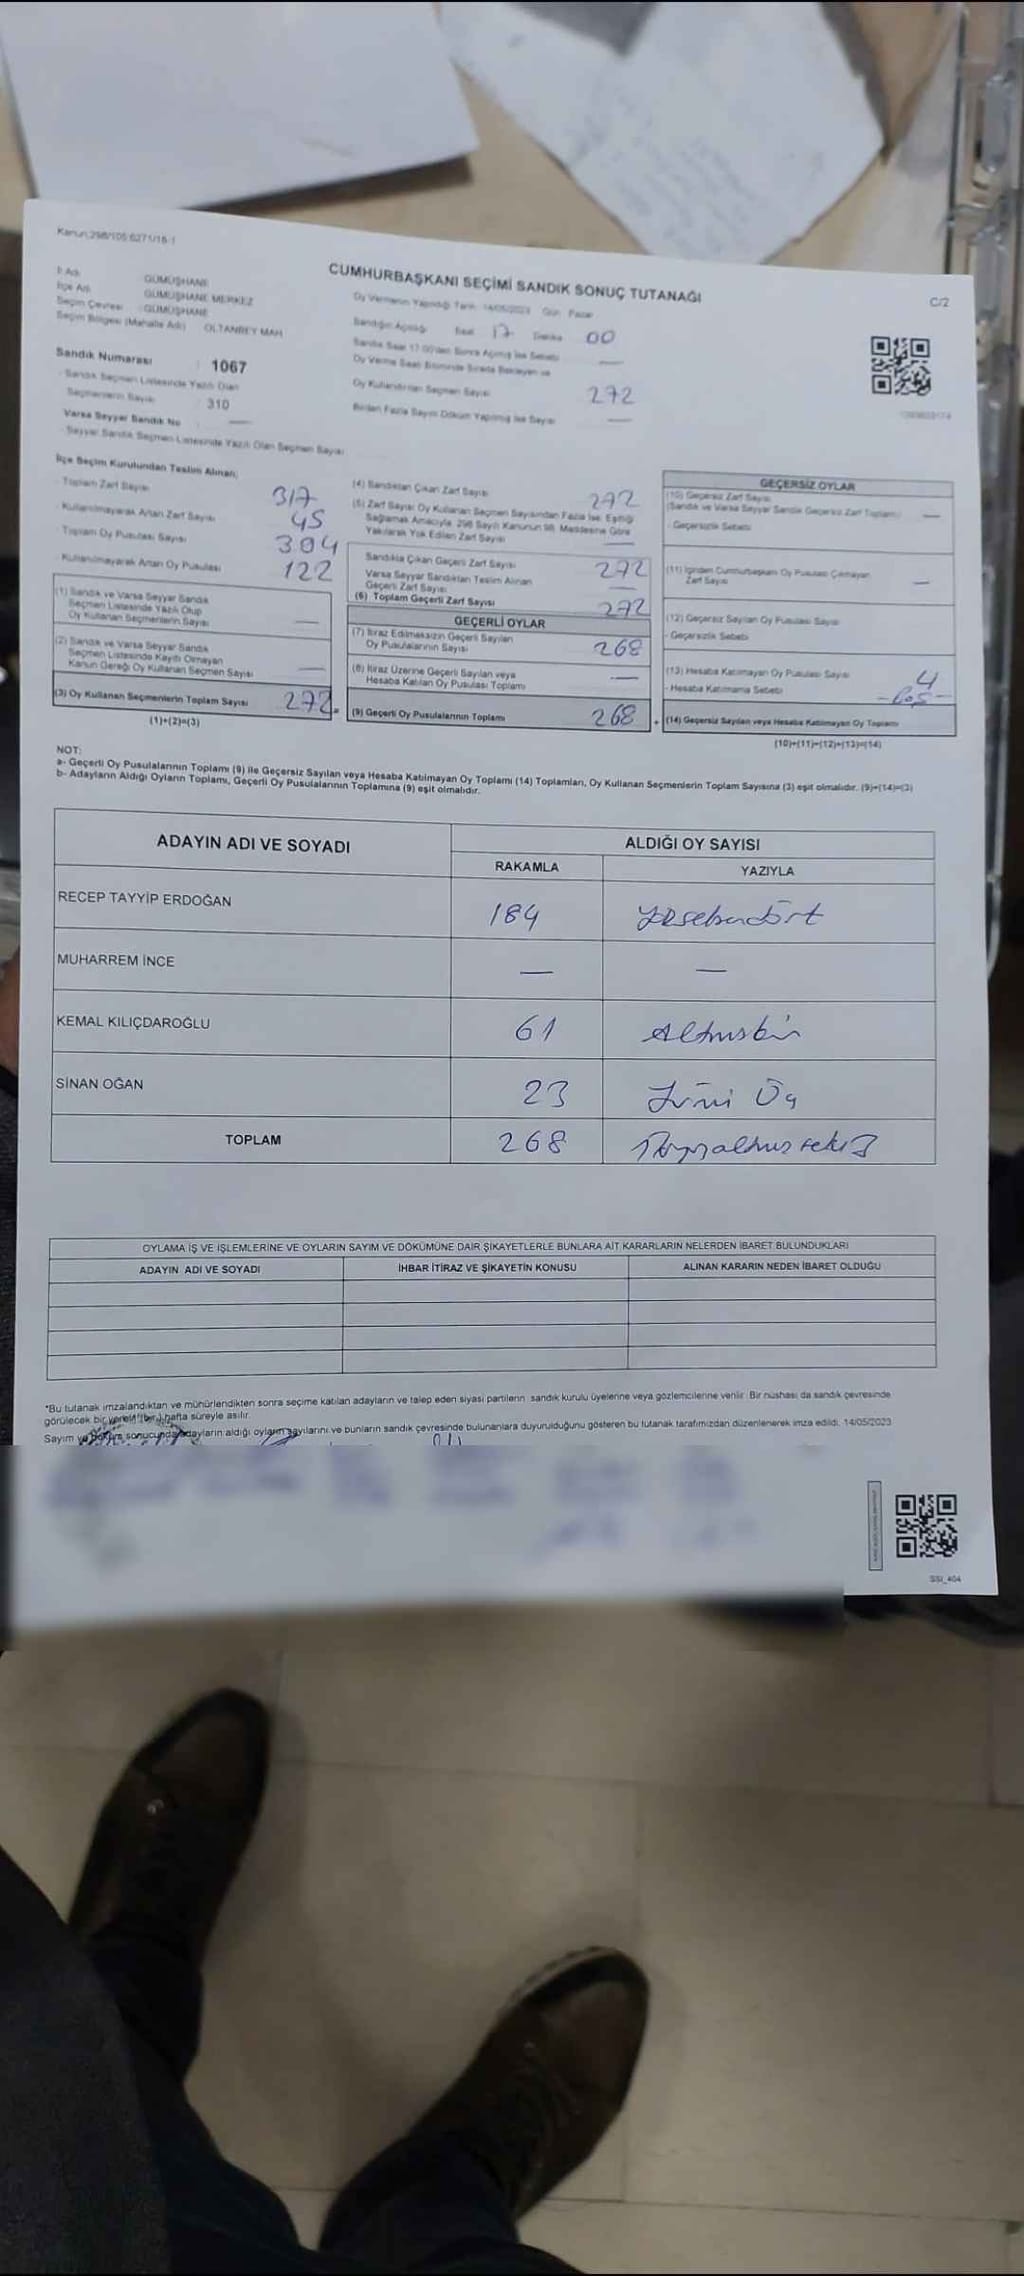 Kanun:298/105;6271/18-1
CUMHURBAŞKANI SEÇİMİ SANDIK SONUÇ TUTANAĞI
C/2
İl Adı : GÜMÜŞHANE
İlçe Adı : GÜMÜŞHANE MERKEZ
Seçim Çevresi : GÜMÜŞHANE
Seçim Bölgesi (Mahalle Adı) : OLTANBEY MAH
Sandık Numarası : 1067
- Sandık Seçmen Listesinde Yazılı Olan
Seçmenlerin Sayısı : 310
Varsa Seyyar Sandık No : —
- Seyyar Sandık Seçmen Listesinde Yazılı Olan Seçmen Sayısı
Oy Vermenin Yapıldığı Tarih: 14/05/2023 Gün: Pazar
Sandığın Açıldığı Saat 17 Dakika 00
Sandık Saat 17:00'den Sonra Açılmış İse Sebebi —
Oy Verme Saati Bitiminde Sırada Bekleyen ve
Oy Kullandırılan Seçmen Sayısı 272
Birden Fazla Sayım Döküm Yapılmış İse Sayısı —
İlçe Seçim Kurulundan Teslim Alınan;
- Toplam Zarf Sayısı 317
- Kullanılmayarak Artan Zarf Sayısı 45
- Toplam Oy Pusulası Sayısı 394
- Kullanılmayarak Artan Oy Pusulası 122
(1) Sandık ve Varsa Seyyar Sandık
Seçmen Listesinde Yazılı Olup
Oy Kullanan Seçmenlerin Sayısı —
(2) Sandık ve Varsa Seyyar Sandık
Seçmen Listesinde Kayıtlı Olmayan
Kanun Gereği Oy Kullanan Seçmen Sayısı —
(3) Oy Kullanan Seçmenlerin Toplam Sayısı 272
(1)+(2)=(3)
(4) Sandıktan Çıkan Zarf Sayısı 272
(5) Zarf Sayısı Oy Kullanan Seçmen Sayısından Fazla İse, Eşitliği
Sağlamak Amacıyla 298 Sayılı Kanunun 98. Maddesine Göre
Yakılarak Yok Edilen Zarf Sayısı —
Sandıkta Çıkan Geçerli Zarf Sayısı 272
Varsa Seyyar Sandıktan Teslim Alınan
Geçerli Zarf Sayısı —
(6) Toplam Geçerli Zarf Sayısı 272
GEÇERLİ OYLAR
(7) İtiraz Edilmeksizin Geçerli Sayılan
Oy Pusulalarının Sayısı 268
(8) İtiraz Üzerine Geçerli Sayılan veya
Hesaba Katılan Oy Pusulası Toplamı —
(9) Geçerli Oy Pusulalarının Toplamı 268
GEÇERSİZ OYLAR
(10) Geçersiz Zarf Sayısı
(Sandık ve Varsa Seyyar Sandık Geçersiz Zarf Toplamı) —
- Geçersizlik Sebebi
(11) İçinden Cumhurbaşkanı Oy Pusulası Çıkmayan
Zarf Sayısı —
(12) Geçersiz Sayılan Oy Pusulası Sayısı
- Geçersizlik Sebebi
(13) Hesaba Katılmayan Oy Pusulası Sayısı 4
- Hesaba Katılmama Sebebi
(14) Geçersiz Sayılan veya Hesaba Katılmayan Oy Toplamı
(10)+(11)+(12)+(13)=(14)
NOT:
a- Geçerli Oy Pusulalarının Toplamı (9) ile Geçersiz Sayılan veya Hesaba Katılmayan Oy Toplamı (14) Toplamları, Oy Kullanan Seçmenlerin Toplam Sayısına (3) eşit olmalıdır. (9)+(14)=(3)
b- Adayların Aldığı Oyların Toplamı, Geçerli Oy Pusulalarının Toplamına (9) eşit olmalıdır.
ADAYIN ADI VE SOYADI
ALDIĞI OY SAYISI
RAKAMLA YAZIYLA
RECEP TAYYİP ERDOĞAN 184
MUHARREM İNCE — —
KEMAL KILIÇDAROĞLU 61 Altmışbir
SİNAN OĞAN 23 Yirmi Üç
TOPLAM 268
OYLAMA İŞ VE İŞLEMLERİNE VE OYLARIN SAYIM VE DÖKÜMÜNE DAİR ŞİKAYETLERLE BUNLARA AİT KARARLARIN NELERDEN İBARET BULUNDUKLARI
ADAYIN ADI VE SOYADI İHBAR İTİRAZ VE ŞİKAYETİN KONUSU ALINAN KARARIN NEDEN İBARET OLDUĞU
*Bu tutanak imzalandıktan ve mühürlendikten sonra seçime katılan adayların ve talep eden siyasi partilerin sandık kurulu üyelerine veya gözlemcilerine verilir. Bir nüshası da sandık çevresinde
görülecek bir yerde (bir) hafta süreyle asılır.
Sayım ve döküm sonucunda adayların aldığı oyların sayılarını ve bunların sandık çevresinde bulunanlara duyurulduğunu gösteren bu tutanak tarafımızdan düzenlenerek imza edildi. 14/05/2023
SSI_404